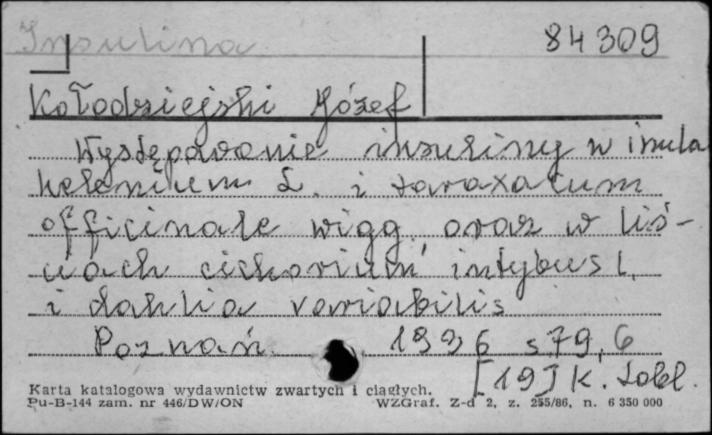 Insulina
84309
Kołodziejski Józef
Występowanie insuliny w inula
helenium L. i taraxacum
officinale wigg. oraz w liś-
ciach cichorium intybus L.
i dahlia variabilis
Poznań 1936 s 79, 6
[19] K. tabl.
Karta katalogowa wydawnictw zwartych i ciągłych.
Pu-B-144 zam. nr 446/DW/ON WZGraf. Z-d 2, z. 255/86, n. 6 350 000